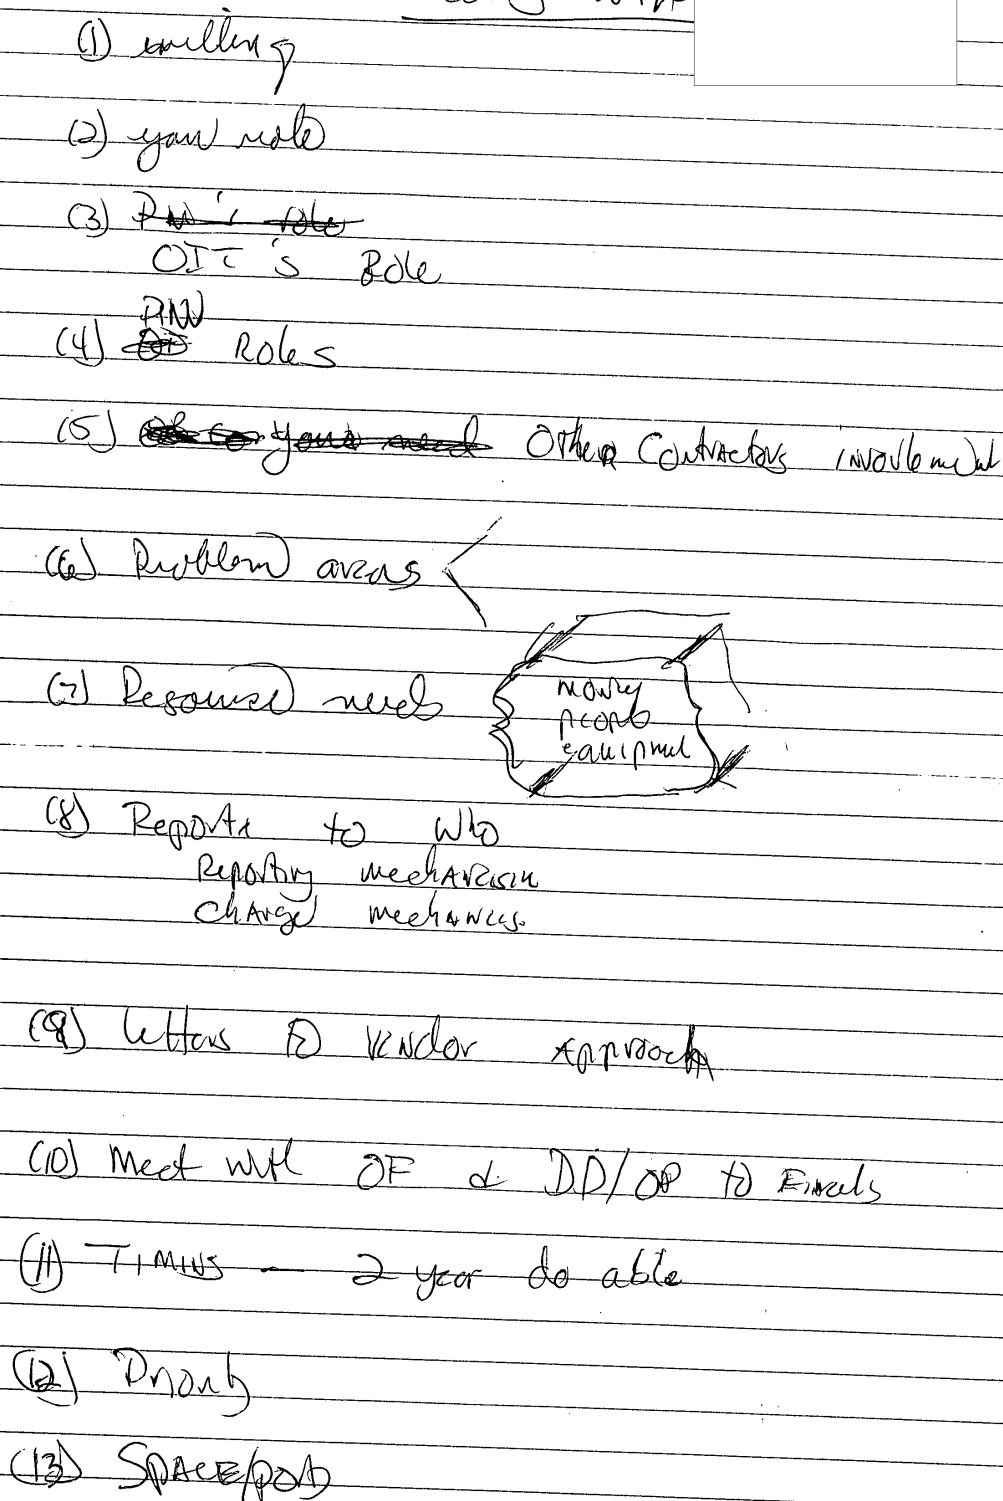 (1) willing
(2) your role
(3) PNW's role
OIT's Role
PNW
(4) Roles
(5) your need Other Contractors involvement
(6) Problem areas
(7) Resource needs
money
people
equipment
(8) Reports to who
Reporting mechanism
Charge mechanics.
(9) letters to vendor Approach
(10) Meet with OF & DD/OP to
(11) TIMING — 2 year do able
(12) Priority
(13) SPACE/POD